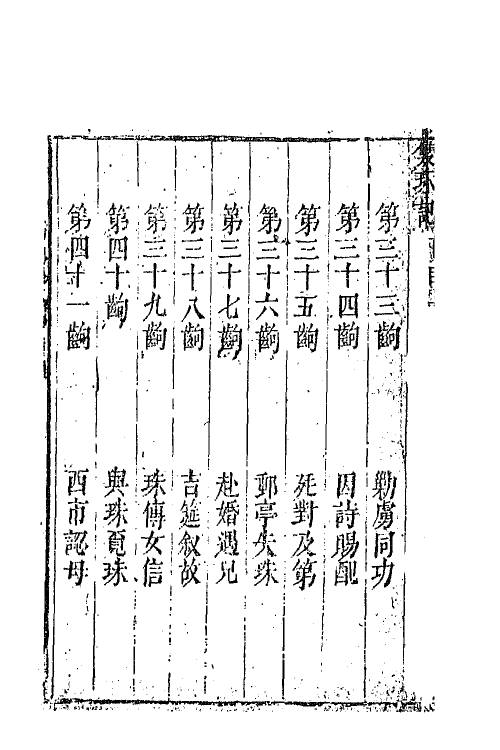 第三十三齣 勦虜同功
第三十四齣 因詩賜配
第三十五齣 死對及第
第三十六齣 郵亭失珠
第三十七齣 赴婚遇兄
第三十八齣 吉筵叙故
第三十九齣 珠傳女信
第四十齣 與珠覓珠
第四十一齣 西市認母